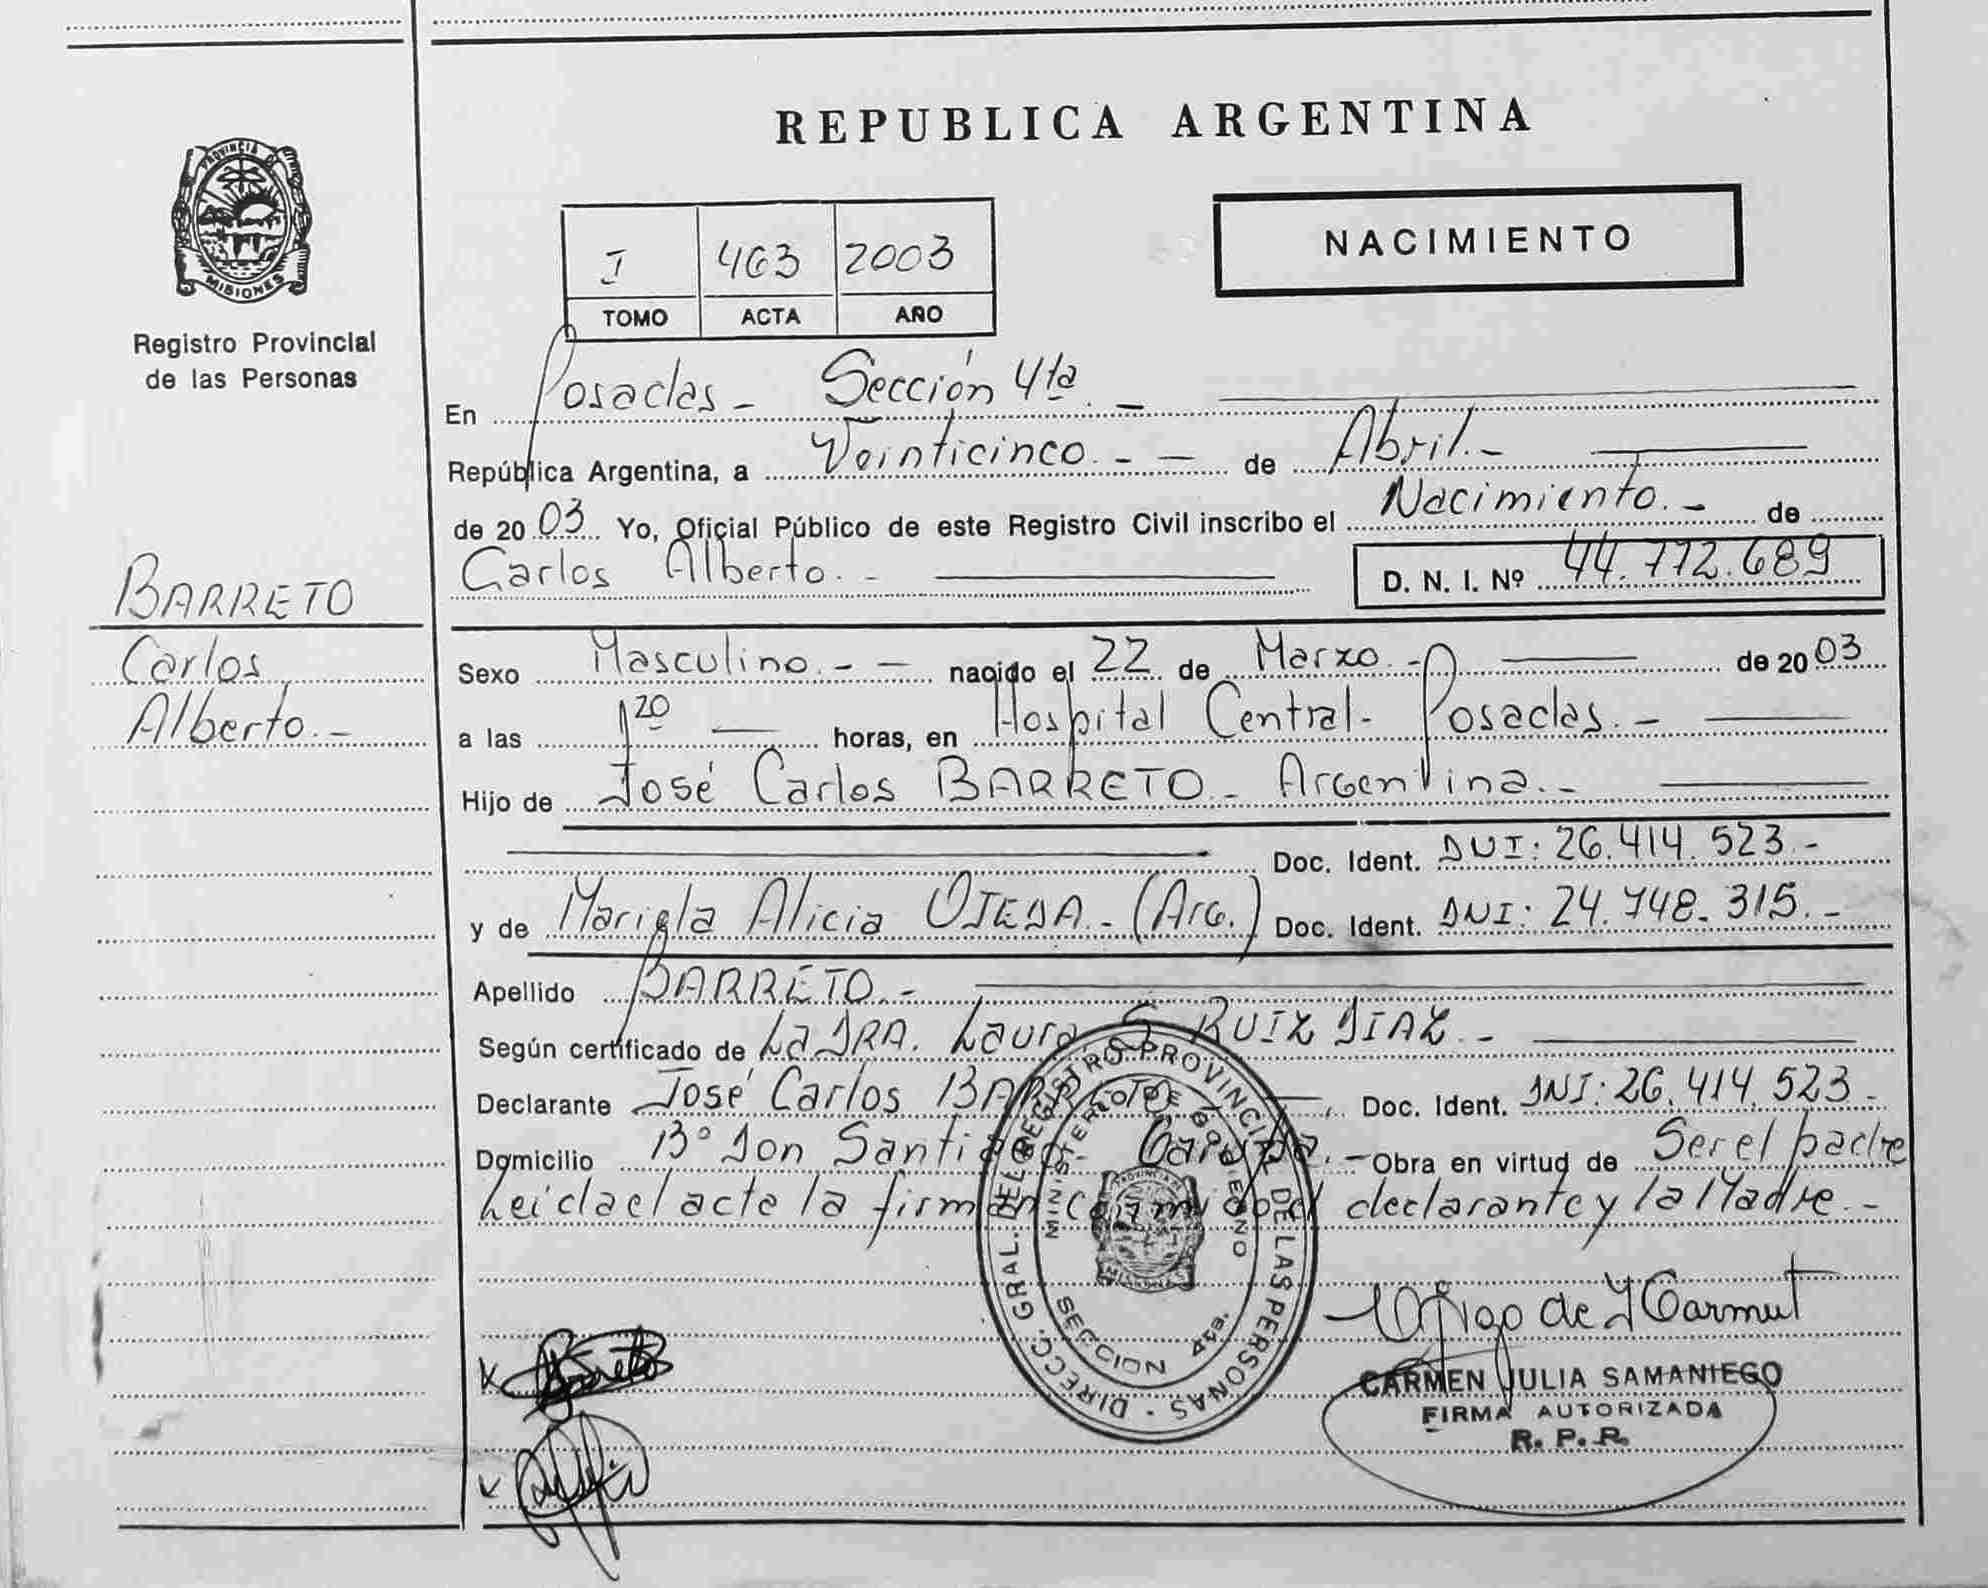 REPUBLICA ARGENTINA
PROVINCIA DE
MISIONES
Registro Provincial
de las Personas
NACIMIENTO
I 463 2003
TOMO ACTA AÑO
En Posadas - Sección 4ta. -
República Argentina, a Veinticinco. - - de Abril. -
de 20 03 Yo, Oficial Público de este Registro Civil inscribo el Nacimiento. - de
Carlos Alberto. - D. N. I. Nº 44.772.689
BARRETO
Carlos
Alberto. -
Sexo Masculino. - - nacido el 22 de Marzo. - de 20 03
a las 1 20 horas, en Hospital Central - Posadas. -
Hijo de José Carlos BARRETO - Argentina. -
Doc. Ident. DNI: 26.414.523. -
y de Mariela Alicia OJEDA. - (Arg.) Doc. Ident. DNI: 24.748.315. -
Apellido BARRETO. -
Según certificado de La DRA. Laura S. RUIZ DIAZ. -
Declarante José Carlos BARRETO Doc. Ident. DNI: 26.414.523 -
Domicilio Bº Don Santiago - Garupá. - Obra en virtud de Ser el padre
Leida el acta la firman conmigo el declarante y la Madre. -
DIRECC. GRAL. DEL REGISTRO PROVINCIAL DE LAS PERSONAS -
MINISTERIO DE GOBIERNO
SECCION 4ta.
CARMEN JULIA SAMANIEGO
FIRMA AUTORIZADA
R. P. P.